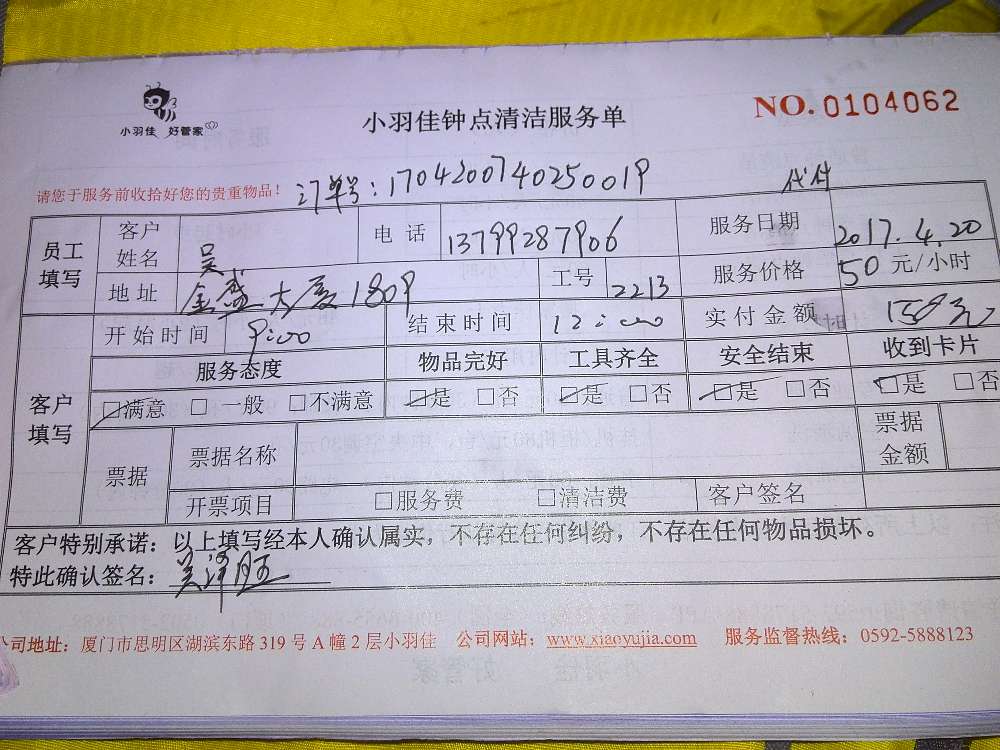 小羽佳 好管家
小羽佳钟点清洁服务单
NO. 0104062
请您于服务前收拾好您的贵重物品！ 订单号：1704200740250019 代付
员工填写 客户姓名 吴 电话 13799287906 服务日期 2017.4.20
地址 金盛大厦1809 工号 2213 服务价格 50 元/小时
客户填写 开始时间 9:00 结束时间 12:00 实付金额 158元
服务态度 物品完好 工具齐全 安全结束 收到卡片
☑满意 □一般 □不满意 ☑是 □否 ☑是 □否 ☑是 □否 ☑是 □否
票据 票据名称 票据金额
开票项目 □服务费 □清洁费 客户签名
客户特别承诺：以上填写经本人确认属实，不存在任何纠纷，不存在任何物品损坏。
特此确认签名：吴泽
公司地址：厦门市思明区湖滨东路 319 号 A 幢 2 层小羽佳 公司网站：www.xiaoyujia.com 服务监督热线：0592-5888123